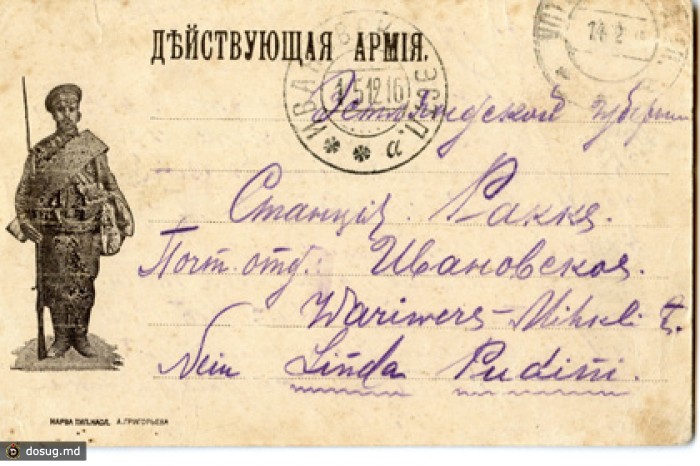 ДѢЙСТВУЮЩАЯ АРМІЯ.
15 12 16
а
14 2
Эстляндской губерни
Станція. Ракке.
Почт. отд: Ивановское.
Wariwers-Mihkeli t.
Nein Linda Pudini.
НАРВА ТИП. НАСЛ. А. ГРИГОРЬЕВА
dosug.md